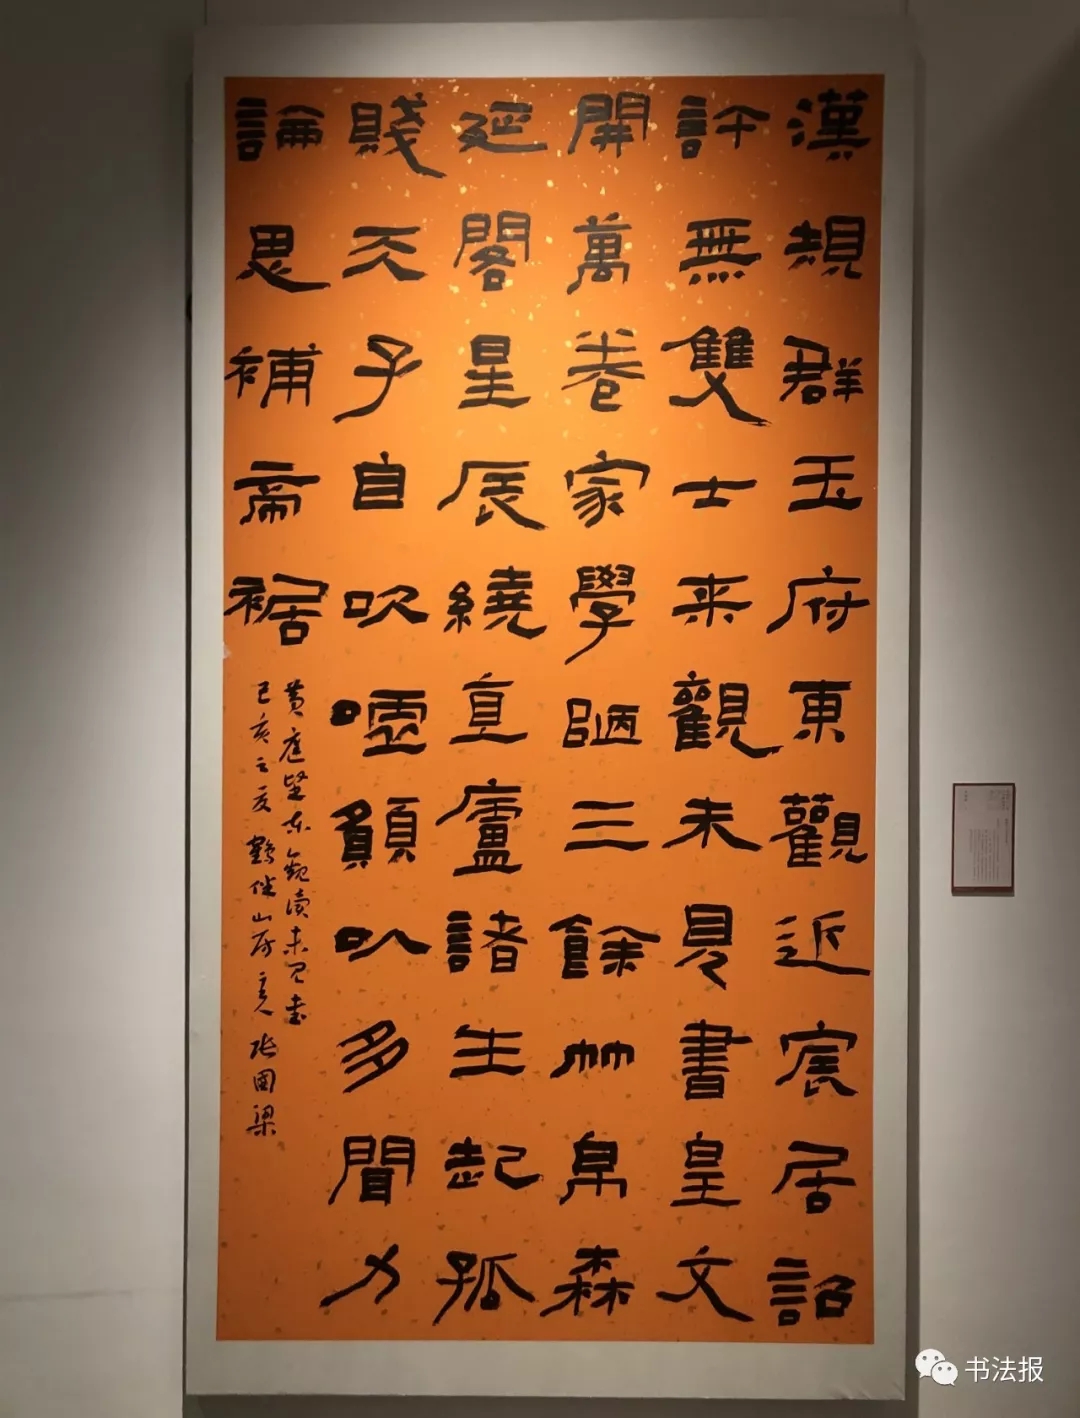 漢規群玉府東觀近宸居詔
許無雙士来觀未見書皇文
開萬卷家學陋三餘竹帛森
延閣星辰繞直廬諸生起孤
賤天子自吹噓願以多聞力
論思補帝裾
黄庭堅東觀讀未見書
己亥之夏鶴伴山房主人張國梁
书法报